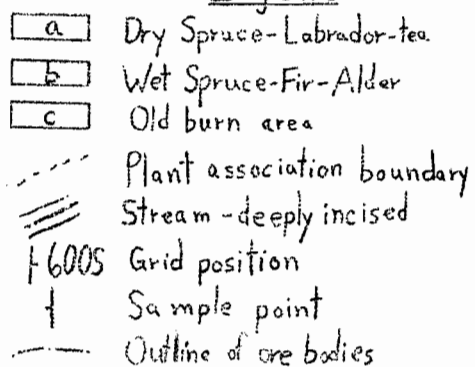 a Dry Spruce-Labrador-tea
b Wet Spruce-Fir-Alder
c Old burn area
Plant association boundary
Stream - deeply incised
600S Grid position
Sample point
Outline of ore bodies